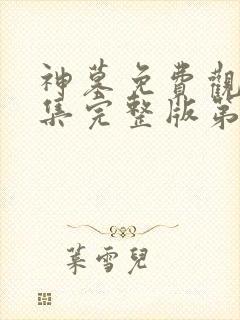 神墓免費觀
集完整版第
葉雪兒